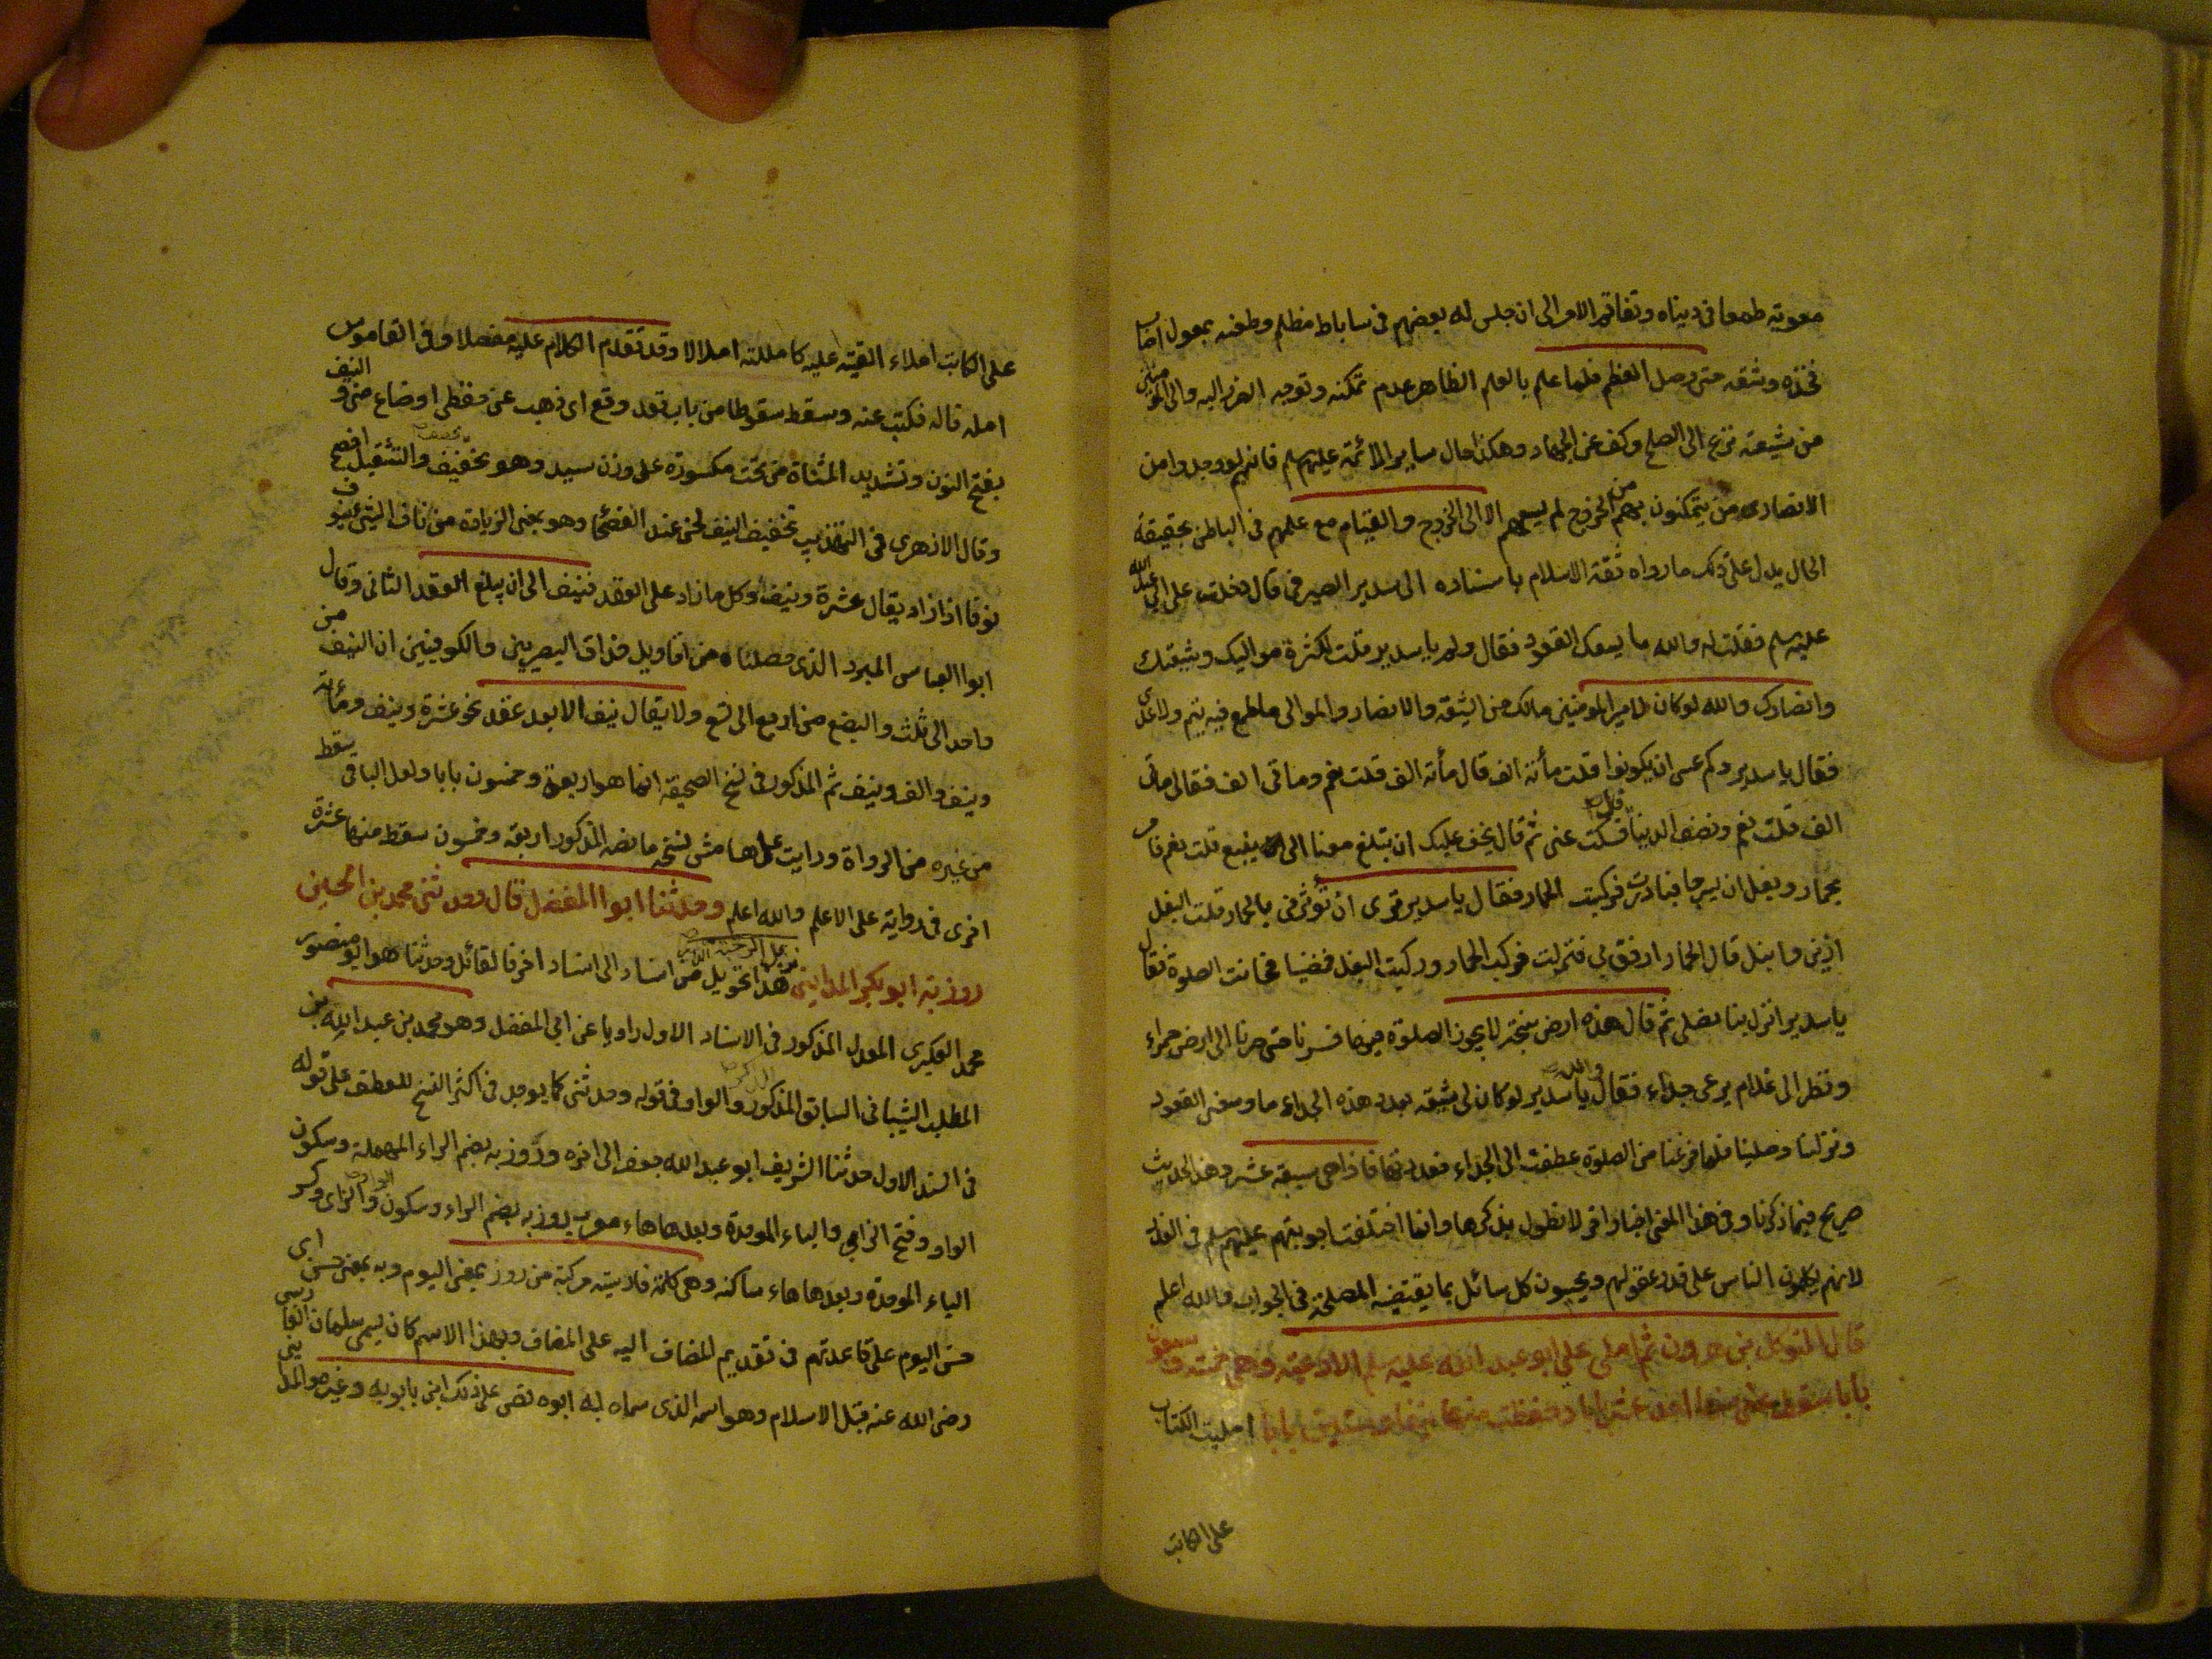 معوية طمعا فى دنياه وتفاقم الامر الى ان جلس له بعضهم فى ساباط مظلم وطعنه بمعول اصاب
فخذه وشقه حتى وصل العظم فلما علم بالعلم الظاهر عدم تمكنه وتوجه الضرر اليه والى المؤمنين
من شيعته نزع الى الصلح وكف عن الجهاد وهكذا حال ساير الائمة عليهم سلم فانهم لو وجدوا من
الانصار من يتمكنون بهم من الخروج لم يسعهم الا الخروج والقيام مع علمهم فى الباطن بحقيقة
الحال يدل على ذلك ما رواه ثقة الاسلام باسناده الى سدير الصيرفى قال دخلت على ابى عبد الله
عليه سلم فقلت له والله ما يسعك القعود فقال ولم يا سدير قلت لكثرة مواليك وشيعتك
وانصارك والله لو كان لامير المؤمنين مالك من الشيعة والانصار والموالى ما طمع فيه تيم ولا عدى
فقال يا سدير وكم عسى ان يكونوا قلت مائة الف قال مأئة الف قلت نعم ومائتى الف فقال مائتى
الف قلت نعم ونصف الدنيا قال فسكت عنى ثم قال يخف عليك ان تبلغ معنا الى ينبع قلت نعم فامر
بحمار وبغل ان يسرجا فبادرت فركبت الحمار فقال يا سدير ترى ان تؤثرنى بالحمار قلت البغل
ازين وانبل قال الحمار ارفق بى فنزلت فركب الحمار وركبت البغل فمضينا فحانت الصلوة فقال
يا سدير انزل بنا نصلى ثم قال هذه ارض سبخة لا يجوز الصلوة فيها فسرنا حتى صرنا الى ارض حمراء
ونظر الى غلام يرعى جداء فقال والله يا سدير لو كان لى شيعة بعدد هذه الجداء ما وسعنى القعود
ونزلنا وصلينا فلما فرغنا من الصلوة عطفت الى الجداء فعددتها فاذا هى سبعة عشر وهذا الحديث
صريح فيما ذكرنا وفى هذا المعنى اخبار اخر لا نطول بذكرها وانما اختلفت اجوبتهم عليهم سلم فى
لانهم يكلمون الناس على قدر عقولهم ويجيبون كل سائل بما يقتضيه المصلحة فى الجواب والله اعلم
قال المتوكل بن هرون ثم املى على ابو عبد الله عليه سلم الادعية وهى خمسة وسبعون
بابا سقط عنى منها احد عشر بابا وحفظت منها نيفا وستين بابا امليت الكتاب
على الكاتب
على الكاتب املاء القيته عليه كامللته املالا وقد تقدم الكلام عليه مفصلا وفى القاموس
امله قاله فكتب عنه وسقط سقوطا من باب قعد وقع اى ذهب عن حفظى او ضاع منى والنيف
بفتح النون وتشديد المثناة من تحت مكسورة على وزن سيد وهو تخفيف والتثقيل افصح
وقال الازهرى فى التهذيب تخفيف النيف لحن عند الفصحاء وهو بمعنى الزيادة من ناف الشئ ينوف
نوفا اذا زاد يقال عشرة ونيف وكل ما زاد على العقد فنيف الى ان يبلغ العقد الثانى وقال
ابو العباس المبرد الذى حصلناه من اقاويل حذاق البصريين والكوفيين ان النيف من
واحد الى ثلث والبضع من اربع الى تسع ولا يقال نيف الا بعد عقد نحو عشرة ونيف ومائة
ونيف والف ونيف ثم المذكور فى نسخ الصحيفة انما هو اربعة وخمسون بابا ولعل الباقى سقط
من غيره من الرواة ورايت على هامش نسخة ما نصه المذكور اربعة وخمسون سقط منها عشرة
اخرى فى رواية على الاعلم والله اعلم وحدثنا ابو المفضل قال وحدثنى محمد بن الحسن
روزبه ابو بكر المداينى نزيل الرحبة هذا تحويل من اسناد الى اسناد اخر فالقائل وحدثنا هو ابو منصور
محمد العكبرى المعدل المذكور فى الاسناد الاول راويا عن ابى المفضل وهو محمد بن عبد الله بن
المطلب الشيبانى السابق المذكور والواو فى قوله وحدثنى كما يوجد فى اكثر النسخ للعطف على قوله
فى السند الاول حدثنا الشريف ابو عبد الله جعفر الى اخره وروزبه بضم الراء المهملة وسكون
الواو وفتح الزاى والباء الموحدة وبعدها هاء معرب روزبه بضم الراء وسكون الواو والزاى وكسر
الباء الموحدة وبعدها هاء ساكنة وهى كلمة فارسية مركبة من روز بمعنى اليوم وبه بمعنى حسن اى
حسن اليوم على قاعدتهم فى تقديم المضاف اليه على المضاف وبهذا الاسم كان يسمى سلمان الفارسى
رضى الله عنه قبل الاسلام وهو اسمه الذى سماه به ابوه نص على ذلك ابن بابويه وغيره والمداينى